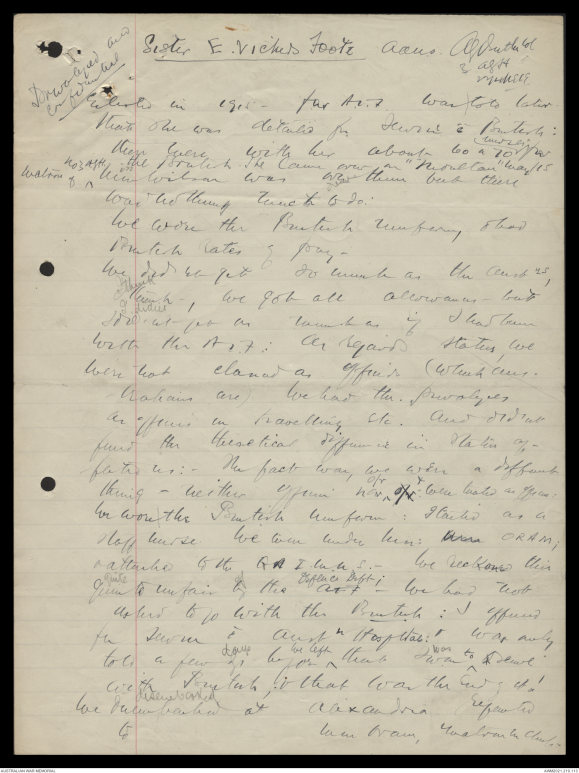 Sister E. Vickers Foote AANS.
& AGH
confidential
Enlisted in 1915 - for A.I.F. Was told later
that she was detailed for Service c British:
there were with her about 60 or 70 for
the British. She came over on "Mooltan" May /15
Matron of No 3 AGH
Miss Wilson was them but there
was nothing much to do.
We wore the British uniform, & had
British rates of pay -
We did not get so much as the Aust ns,
I think, we got all allowances - but
did not get as much as if I had been
with the A.I.F: As regards status, we
were not classed as officers (which Aus-
tralians are) We had the privileges
as officers in travelling etc. And didn't
find the theoretical difference in status af-
fected us: - The fact was, we were a different
thing - neither officers nor o/r were treated as officers.
We wore the British uniform: Started as a
staff nurse We were under him:
attached to the Q.A.I.M.N.S. - We reckoned this
quite unfair of the Defence Dept; - We had not
asked to go with the British: I offered
for Service c Aust n Hospitals: & was only
told a few days before we left that I was to serve
with British: & that was the end of it!
disembarked
We at Alexandria reported
to
AUSTRALIAN WAR MEMORIAL